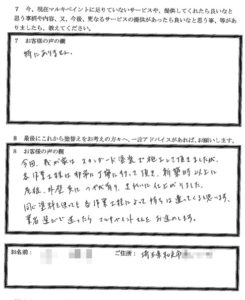 7 今、現在マルキペイントに足りていないサービスや、提供してくれたら良いなと
思う事柄や内容、又、今後、更なるサービスの提供があったら良いなと思う事、等があ
りましたら、教えてください。
7 お客様の声の欄
特にありません。
8 最後にこれから塗替えをお考えの方々へ一言アドバイスがあれば、お願いします。
8 お客様の声の欄
今回、我が家はスタンダード塗装で施工して頂きましたが、
各作業工程は非常に丁寧に行って頂き、新築時以上に
屋根、外壁共につやが有り、きれいに仕上がりました。
同じ塗料を使っても各作業工程によって持ちは違ってくると思います。
業者選びで迷ったらマルキペイントさんをお進めします。
お名前:
ご住所: 埼玉県